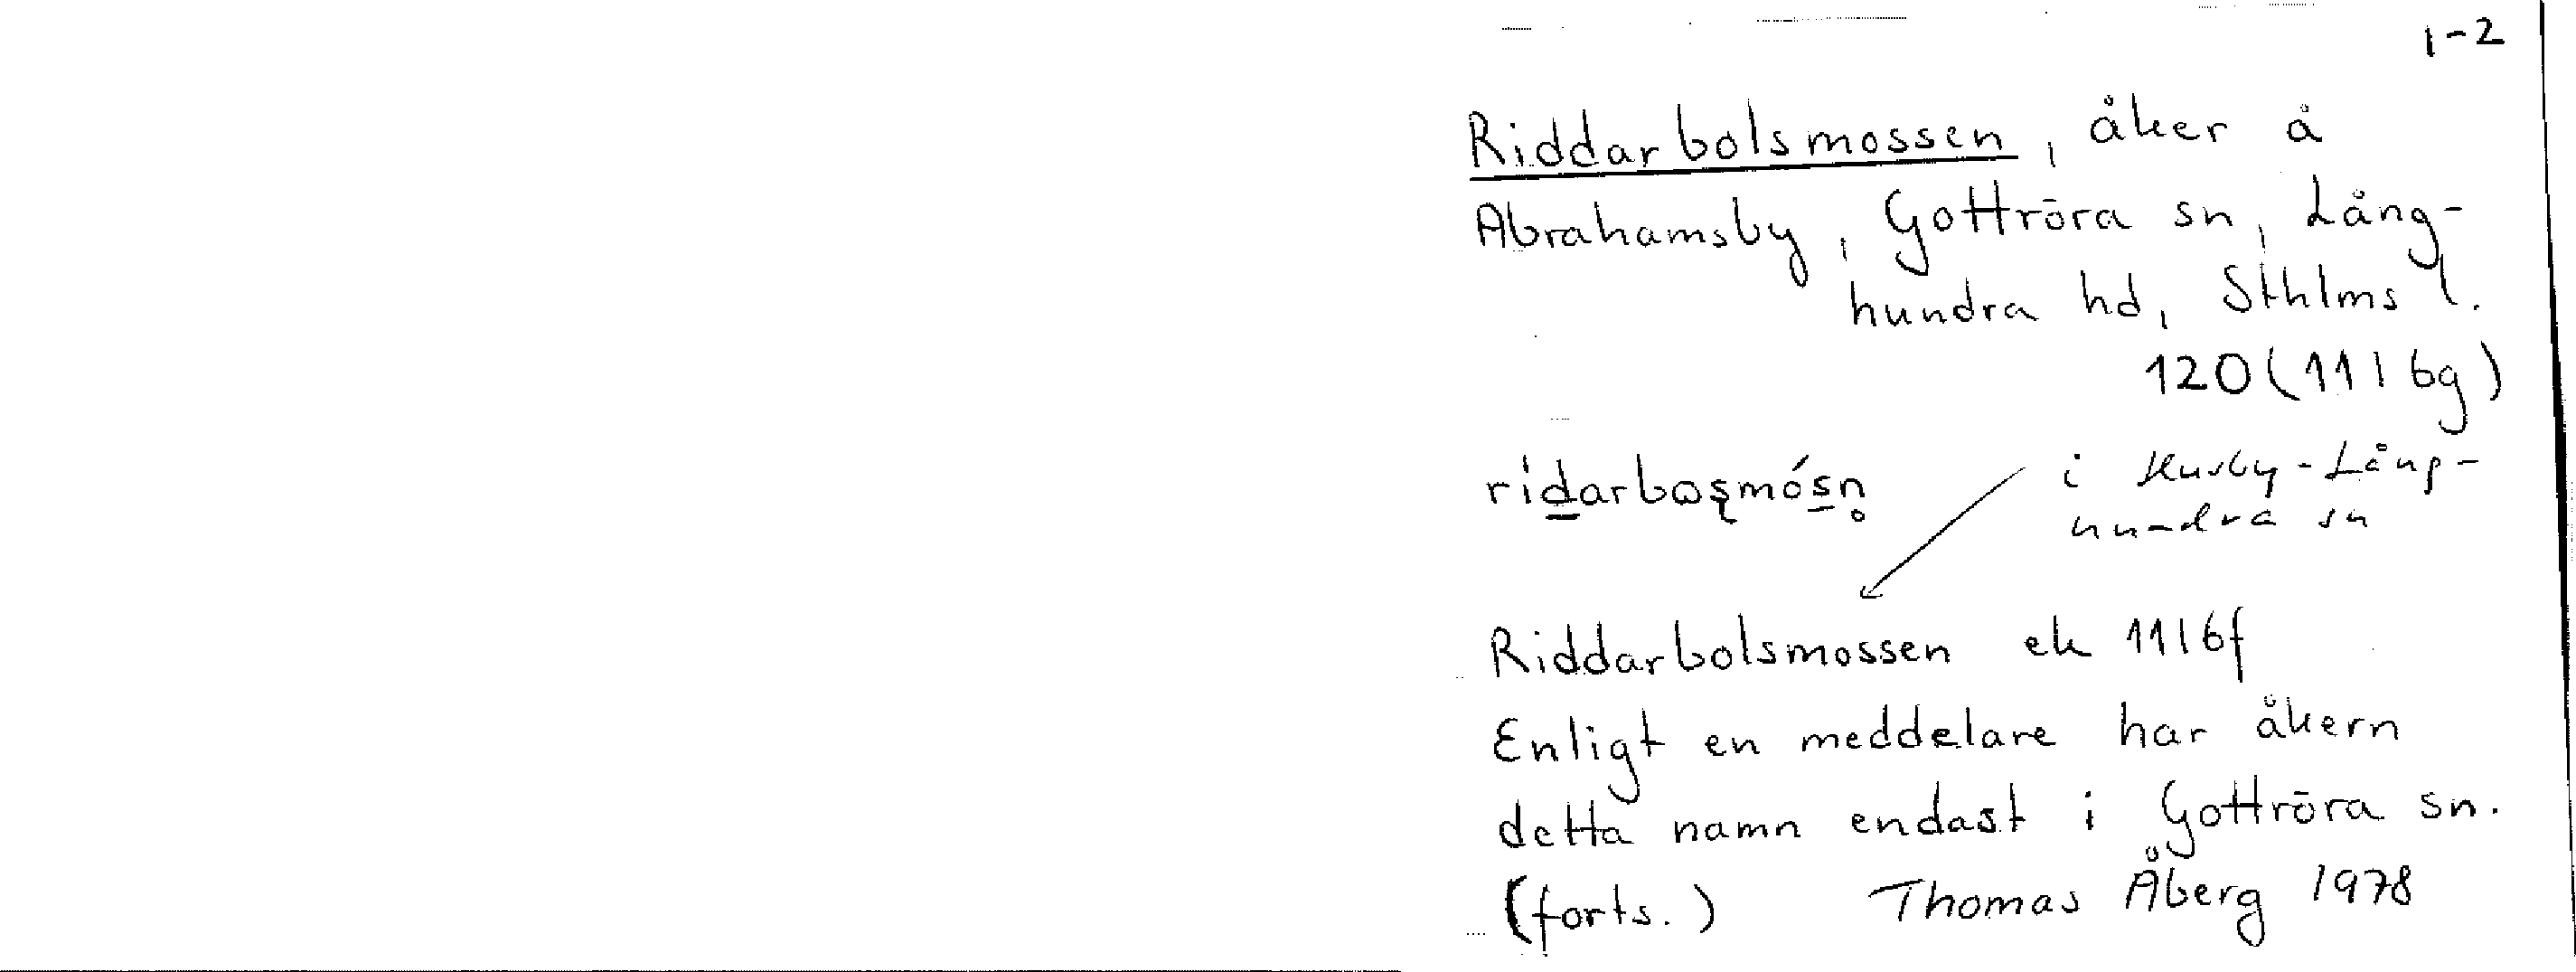 1-2
Riddarbolsmossen, åker å
Abrahamsby, Gottröra sn, Lång-
hundra hd, Sthlms l.
120 (11I6g)
rídarboşmósn̥
i Husby-Lång-
hundra sn
Riddarbolsmossen ek 11I6f
Enligt en meddelare har åkern
detta namn endast i Gottröra sn.
(forts.) Thomas Åberg 1978